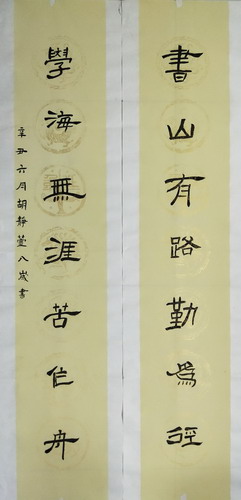 書山有路勤為徑
學海無涯苦作舟
辛丑六月胡靜萱八歲書